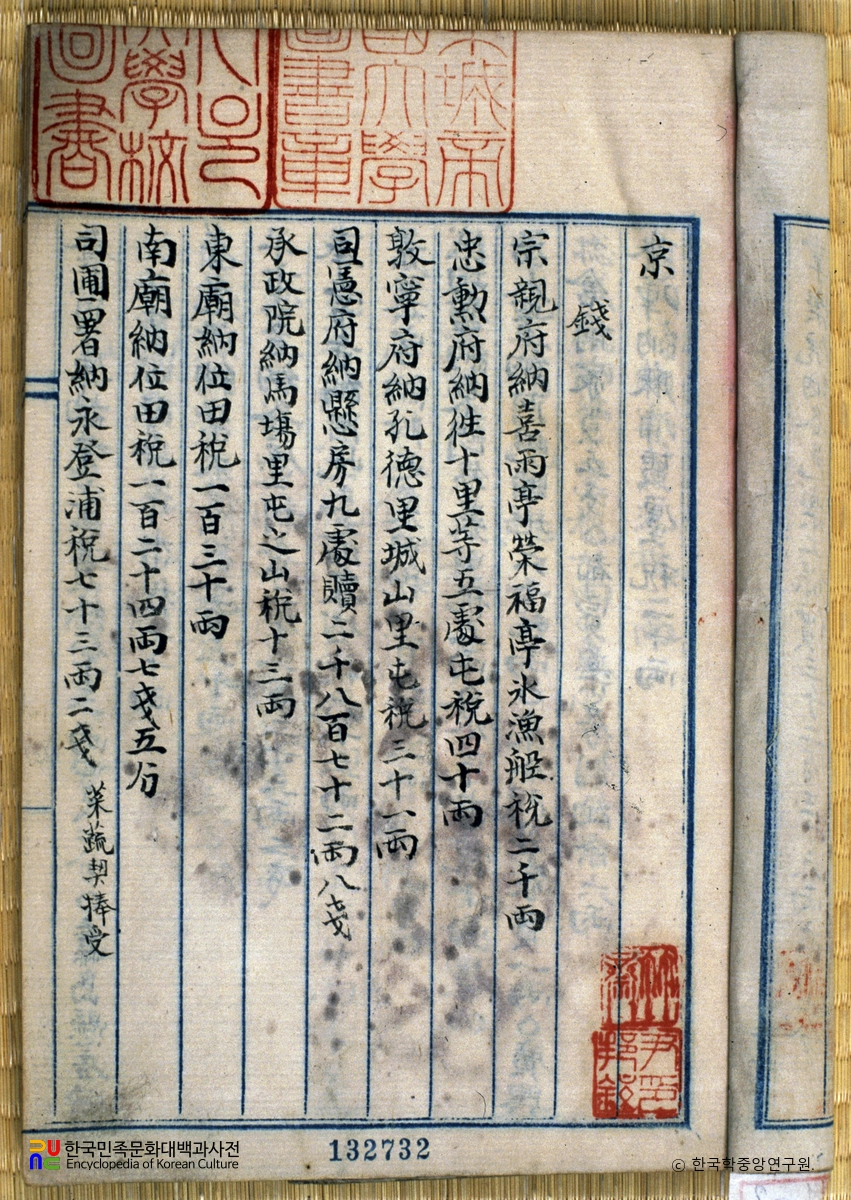 京
錢
宗親府納喜雨亭榮福亭氷漁船税二千兩
忠勳府納徃十里等五處屯税四十兩
敦寧府納孔德里城山里屯税三十一兩
司憲府納懸房九處贖二千八百七十二兩八戔
承政院納馬場里屯之山税十三兩
東廟納位田税一百三十兩
南廟納位田税一百二十四兩七戔五分
司圃署納永登浦税七十三兩二戔 菜蔬契捧受
圖書章
國大學
城帝
學校
圖書
132732
한국민족문화대백과사전
Encyclopedia of Korean Culture
© 한국학중앙연구원